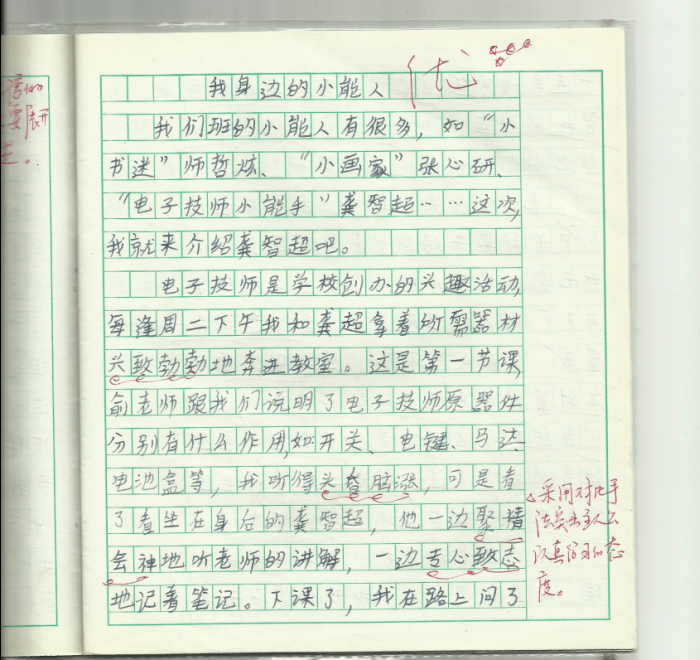 我身边的小能人
优
我们班的小能人有很多，如“小
书迷”师哲炫、“小画家”张心研、
“电子技师小能手”龚智超……这次，
我就来介绍龚智超吧。
电子技师是学校创办的兴趣活动，
每逢周二下午我和龚超拿着所需器材
兴致勃勃地奔进教室。这是第一节课，
俞老师跟我们说明了电子技师原器件
分别有什么作用，如开关、电键、马达、
电池盒等，我听得头昏脑涨，可是看
了看坐在身后的龚智超，他一边聚精
会神地听老师的讲解，一边专心致志
地记着笔记。下课了，我在路上问了
采用对比手
法突出主人公
认真学习的态
度。
要展开